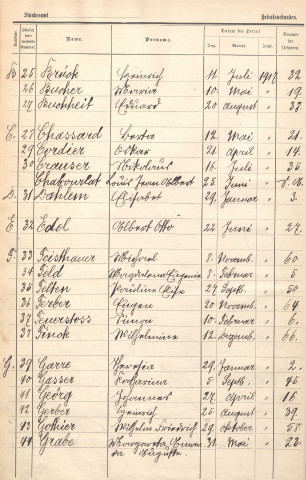 Standesamt Heiratsurkunden.
Name. Vorname. Datum der Heirat Nummer der Urkunden
Tag. Monat Jahr.
B. 25 Brück Heinrich 11. Juli 1917. 32
26 Bucher Maria 10. Mai " 19
27 Buchheit Eduard 20. august " 38
C. 28 Chassard Berta 12. Mai " 21.
29 Cordier Oskar 21. april " 14.
30 Crauser Nikolaus 16. Juli " 35
Chabourlat Louis Jean Albert 25. Juni "
D. 31 Dahlem Elisabet 29. Januar " 3.
E. 32 Edel Albert Otto 22. Juni " 27.
F. 33 Feisthauer Michael 8. Novemb. " 60
34 Feld Magdalena Eugenie 8. Februar " 5
35 Felten Karoline Elise 27. Septb. " 50
36 Ferber Eugen 20. Novemb. " 64
37 Feuerstoss 10. Februar " 6.
37 Finck Wilhelmine 12. Dezemb. " 66.
G. 39 Garre Theresia 29. Januar " 2.
40 Gasser Katharina 5. Septb. " 45
41 Georg Johannes 27. april " 16
42 Gerber Heinrich 25. august " 39.
43 Gothier Wilhelm Friedrich 29. Oktober " 58.
44 Grabe Margareta Emma 31. Mai " 23.
Auguste